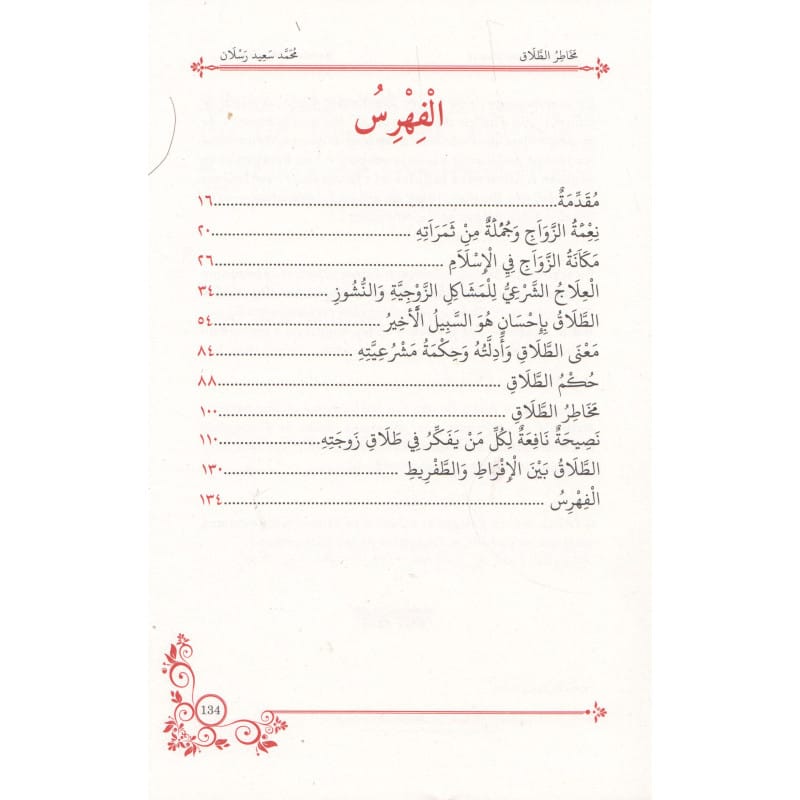 مَخَاطِرُ الطَّلَاق
مُحَمَّد سَعِيد رَسْلَان
الْفِهْرِسُ
مُقَدِّمَةٌ................................................................١٦
نِعْمَةُ الزَّوَاجِ وَجُمْلَةٌ مِنْ ثَمَرَاتِهِ ....................................٢٠
مَكَانَةُ الزَّوَاجِ فِي الْإِسْلَامِ ..........................................٢٦
الْعِلَاجُ الشَّرْعِيُّ لِلْمَشَاكِلِ الزَّوْجِيَّةِ وَالنُّشُوزِ ....................٣٤
الطَّلَاقُ بِإِحْسَانٍ هُوَ السَّبِيلُ الْأَخِيرُ ..............................٥٤
مَعْنَى الطَّلَاقِ وَأَدِلَّتُهُ وَحِكْمَةُ مَشْرُعِيَّتِهِ .........................٨٤
حُكْمُ الطَّلَاقِ .....................................................٨٨
مَخَاطِرُ الطَّلَاقِ ....................................................١٠٠
نَصِيحَةٌ نَافِعَةٌ لِكُلِّ مَنْ يَفَكِّرُ فِي طَلَاقِ زَوجَتِهِ...................١١٠
الطَّلَاقُ بَيْنَ الْإِفْرَاطِ وَالطَّفْرِيطِ ................................١٣٠
الْفِهْرِسُ ...........................................................١٣٤
134